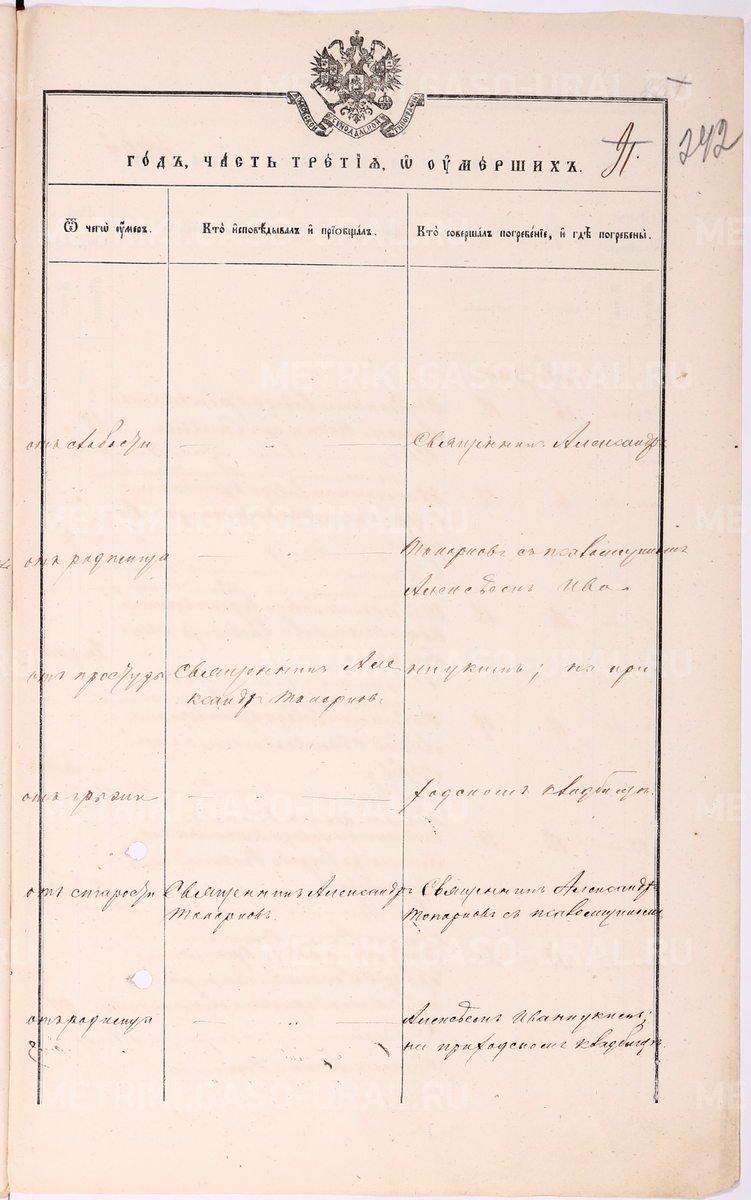 МОСКОВСКОЙ СѴНОДАЛЬНОЙ ТИПОГРАФІИ
ГО́ДЪ, ЧА́СТЬ ТРЕ́ТІѦ, Ѡ҆ ОУ҆МЕ́РШИХЪ.
242
Ѿ чегѡ̀ оу҆́меръ.
Кто̀ и҆сповѣ́дывалъ и҆ прїобща́лъ.
Кто̀ соверша́лъ погребе́нїе, и҆ гдѣ̀ погребены̀.
отъ слабости
Священникъ Александръ
отъ родимца
Топорковъ съ псаломщикомъ
Алексѣемъ Ива
отъ простуды
Священникъ Але
ксандръ Топорковъ.
на при
ходскомъ кладбищѣ.
отъ старости
Священникъ Александръ
Топорковъ.
Священникъ Александръ
Топорковъ съ псаломщикомъ
отъ родимца
Алексѣемъ
на приходскомъ кладбищѣ.
METRIKI.GASO-URAL.RU